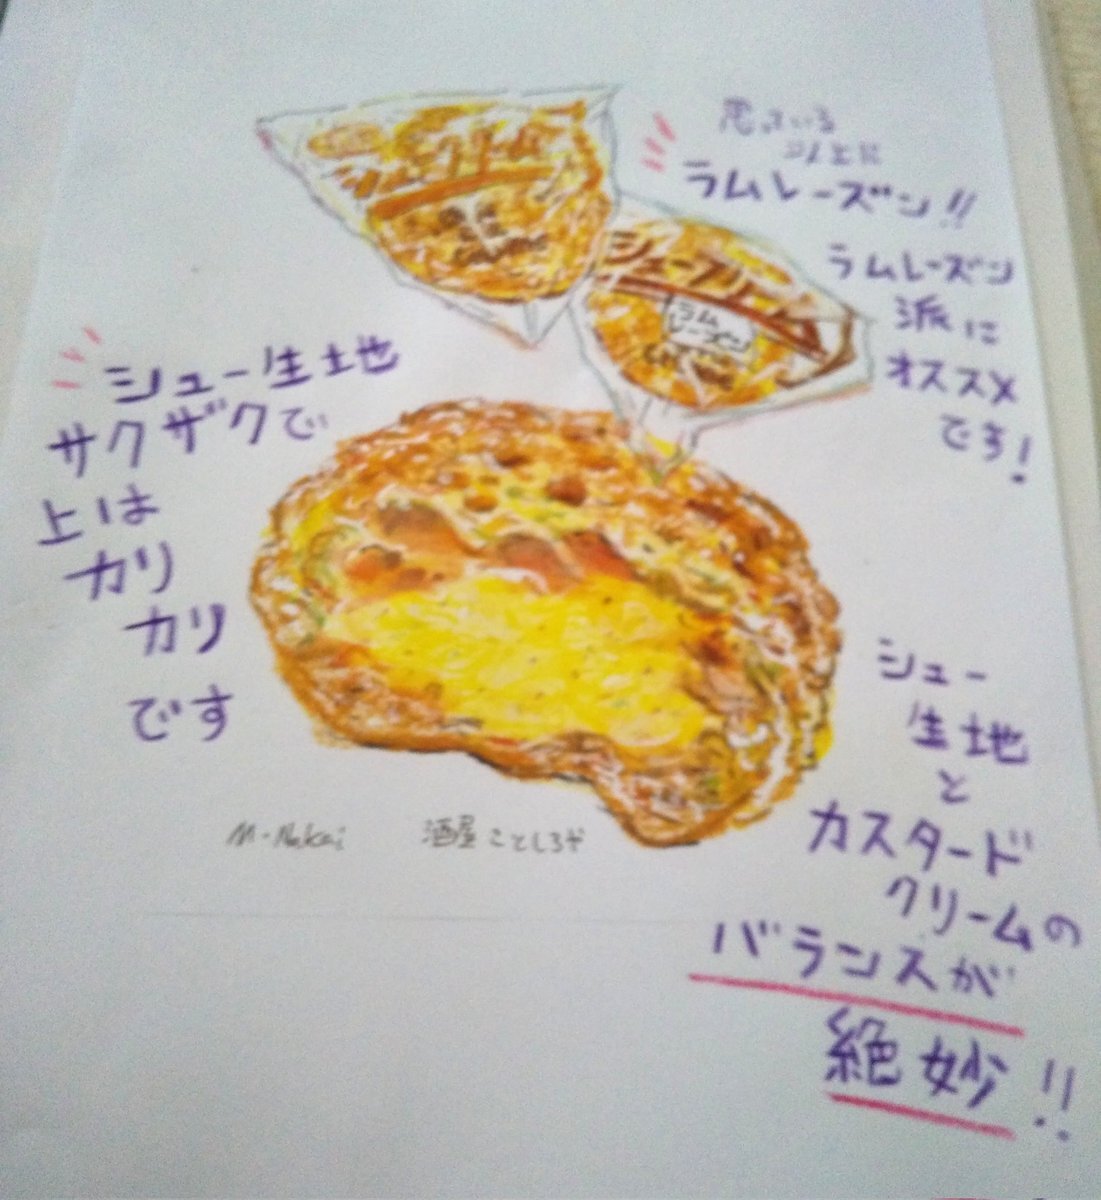 思っている
以上に
ラムレーズン!!
ラムレーズン
派に
オススメ
です!
シュークリーム
シュークリーム
ラム
レーズン
シュー生地
サクザクで
上は
カリ
カリ
です
シュー
生地
と
カスタード
クリームの
バランスが
絶妙!!
M-Nakai 酒屋 ことしろや